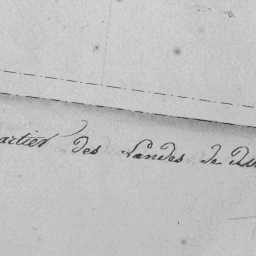 artier des Landes de